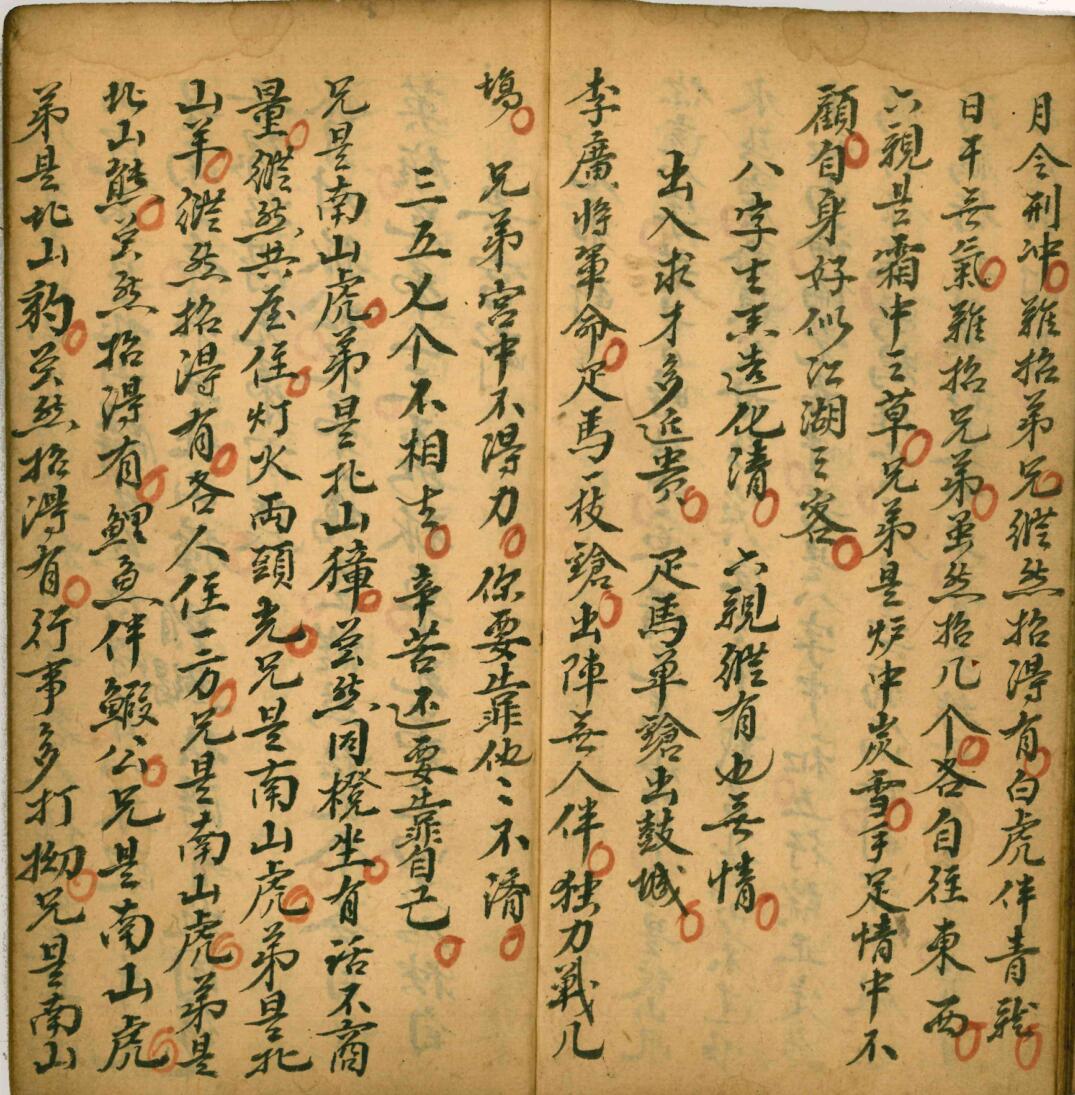 月令刑冲難招弟兄縱然招得有白虎伴青龍
日干無氣難招兄弟虽然招几个各自往東西
六親是霜中之草兄弟是炉中炭雪手足情中不
顧自身好似江湖之客
八字生來造化清 六親縱有也無情
出入求才多近贵 疋馬单鎗出鼓城
李廣將軍命疋馬一枝鎗出陣無人伴独力戰几
塲 兄弟宫中不得力你要靠他〻不濟
三五七个不相生辛苦还要靠自己
兄是南山虎弟是北山獐虽然同櫈坐有话不商
量縱然共屋住灯火両頭光兄是南山虎弟是北
山羊縱然招得有各人住一方兄是南山虎弟是
北山熊虽然招得有鯉魚伴鰕公兄是南山虎
弟是北山豹虽然招得有行事多打拗兄是南山